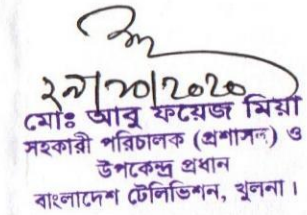 ২৯/১০/২০২০
মোঃ আবু ফয়েজ মিয়া
সহকারী পরিচালক (প্রশাসন) ও
উপকেন্দ্র প্রধান
বাংলাদেশ টেলিভিশন, খুলনা।